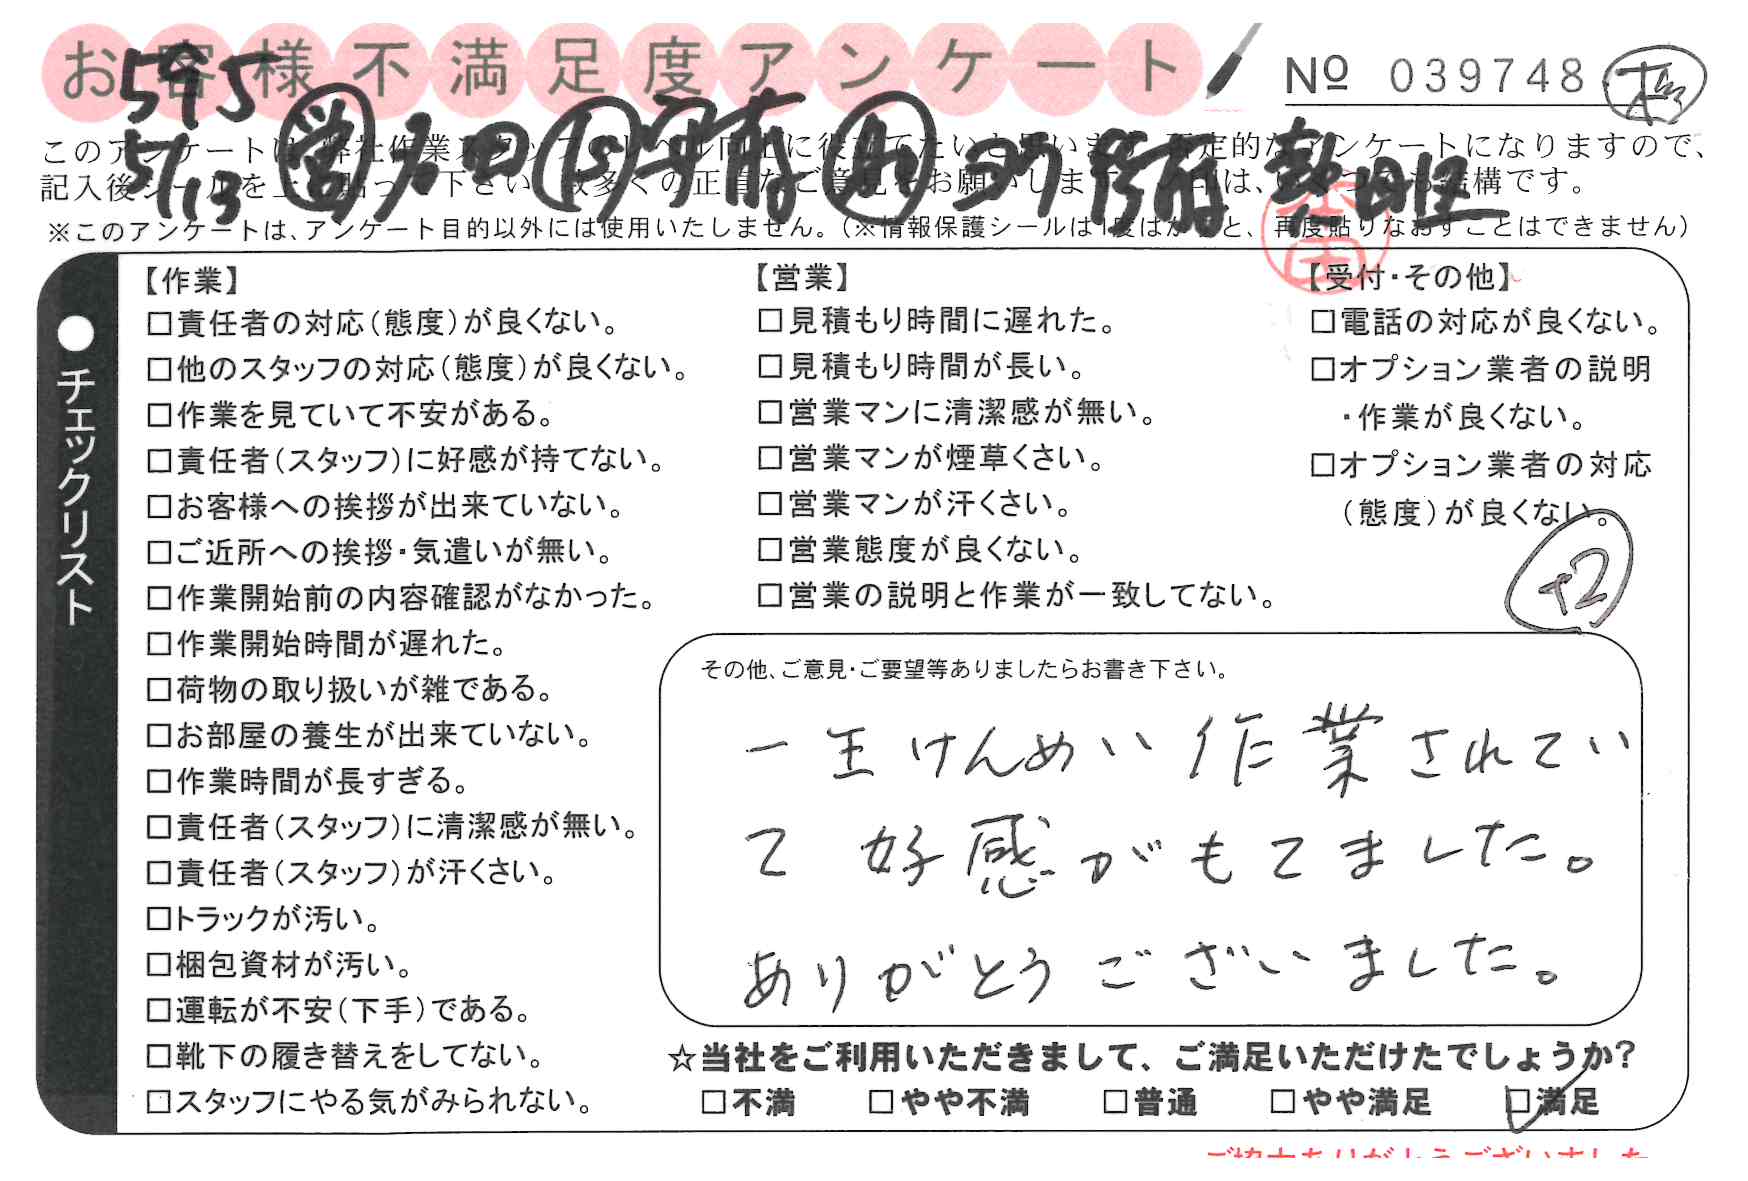 お客様不満足度アンケート
Nº 039748
595
5/13
このアンケートは、弊社作業スタッフのレベル向上に役立てたいと思います。否定的なアンケートになりますので、
記入後シールを上に貼って下さい。数多くの正直なご意見をお願いします。レ印は、いくつでも結構です。
※このアンケートは、アンケート目的以外には使用いたしません。（※情報保護シールは1度はがすと、再度貼りなおすことはできません）
●チェックリスト
【作業】
□責任者の対応（態度）が良くない。
□他のスタッフの対応（態度）が良くない。
□作業を見ていて不安がある。
□責任者（スタッフ）に好感が持てない。
□お客様への挨拶が出来ていない。
□ご近所への挨拶・気遣いが無い。
□作業開始前の内容確認がなかった。
□作業開始時間が遅れた。
□荷物の取り扱いが雑である。
□お部屋の養生が出来ていない。
□作業時間が長すぎる。
□責任者（スタッフ）に清潔感が無い。
□責任者（スタッフ）が汗くさい。
□トラックが汚い。
□梱包資材が汚い。
□運転が不安（下手）である。
□靴下の履き替えをしてない。
□スタッフにやる気がみられない。
【営業】
□見積もり時間に遅れた。
□見積もり時間が長い。
□営業マンに清潔感が無い。
□営業マンが煙草くさい。
□営業マンが汗くさい。
□営業態度が良くない。
□営業の説明と作業が一致してない。
【受付・その他】
□電話の対応が良くない。
□オプション業者の説明
・作業が良くない。
□オプション業者の対応
（態度）が良くない。
+2
その他、ご意見・ご要望等ありましたらお書き下さい。
一生けんめい作業されてい
て好感がもてました。
ありがとうございました。
☆当社をご利用いただきまして、ご満足いただけたでしょうか?
□不満 □やや不満 □普通 □やや満足 □満足
ご協力ありがとうございました